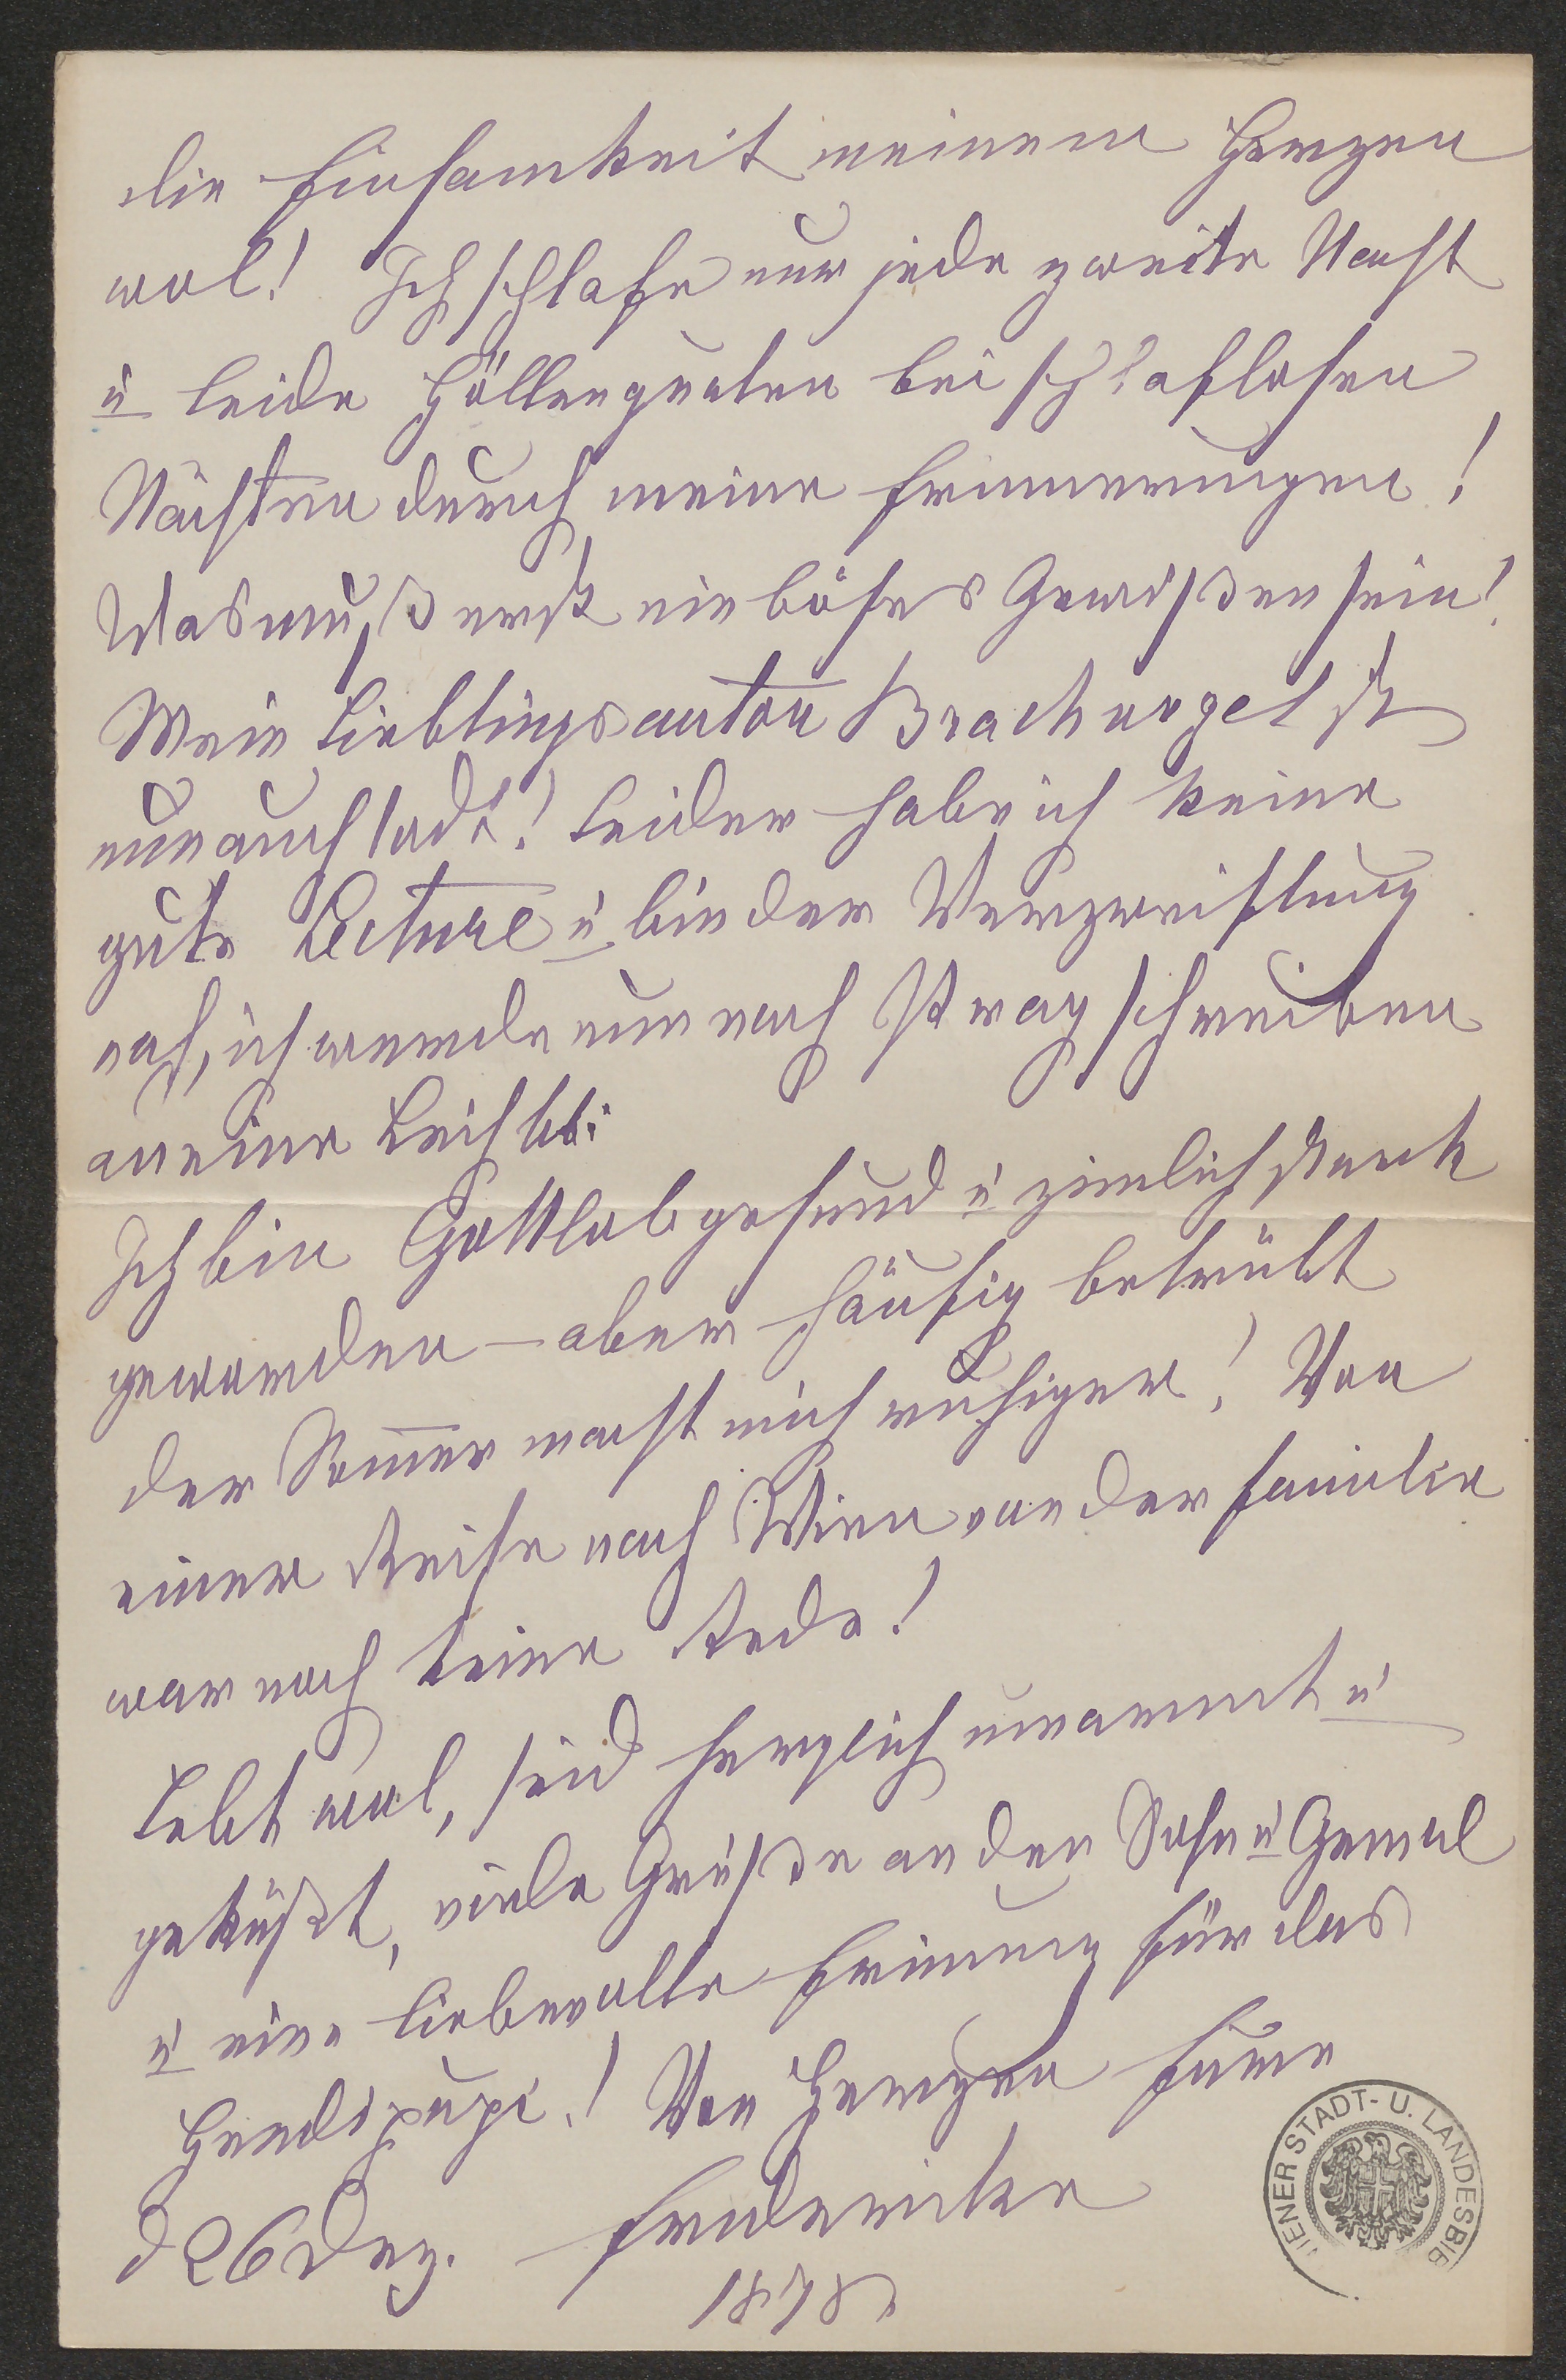 die Einsamkeit meinem Herzen
wol! Ich schlafe nur jede zweite Nacht
u leide Höllenqualen bei schlaflosen
Nächten durch meine Erinnerungen!
Was muß erst ein böses Gewißen sein!
Mein Lieblingsautor Brachvogel ist
nun auch todt! Leider habe ich keine
gute Lecture u bin der Verzweiflung
nah, ich werde nun nach Prag schreiben
an eine Leihbb:
Ich bin Gottlob gesund u zimlich stark
geworden – aber häufig betrübt
der Som̄er macht mich ruhiger! Von
einer Reise nach Wien von der Familie
war noch keine Rede!
Lebt wol, seid herzlich umarmt u
geküßt, viele Grüße an den Sohn u Gemal
u eine liebevolle Erinnung für das
! Von Herzen Eure
d 26 Dez. Friederike
1878
WIENER STADT- U. LANDESBIB